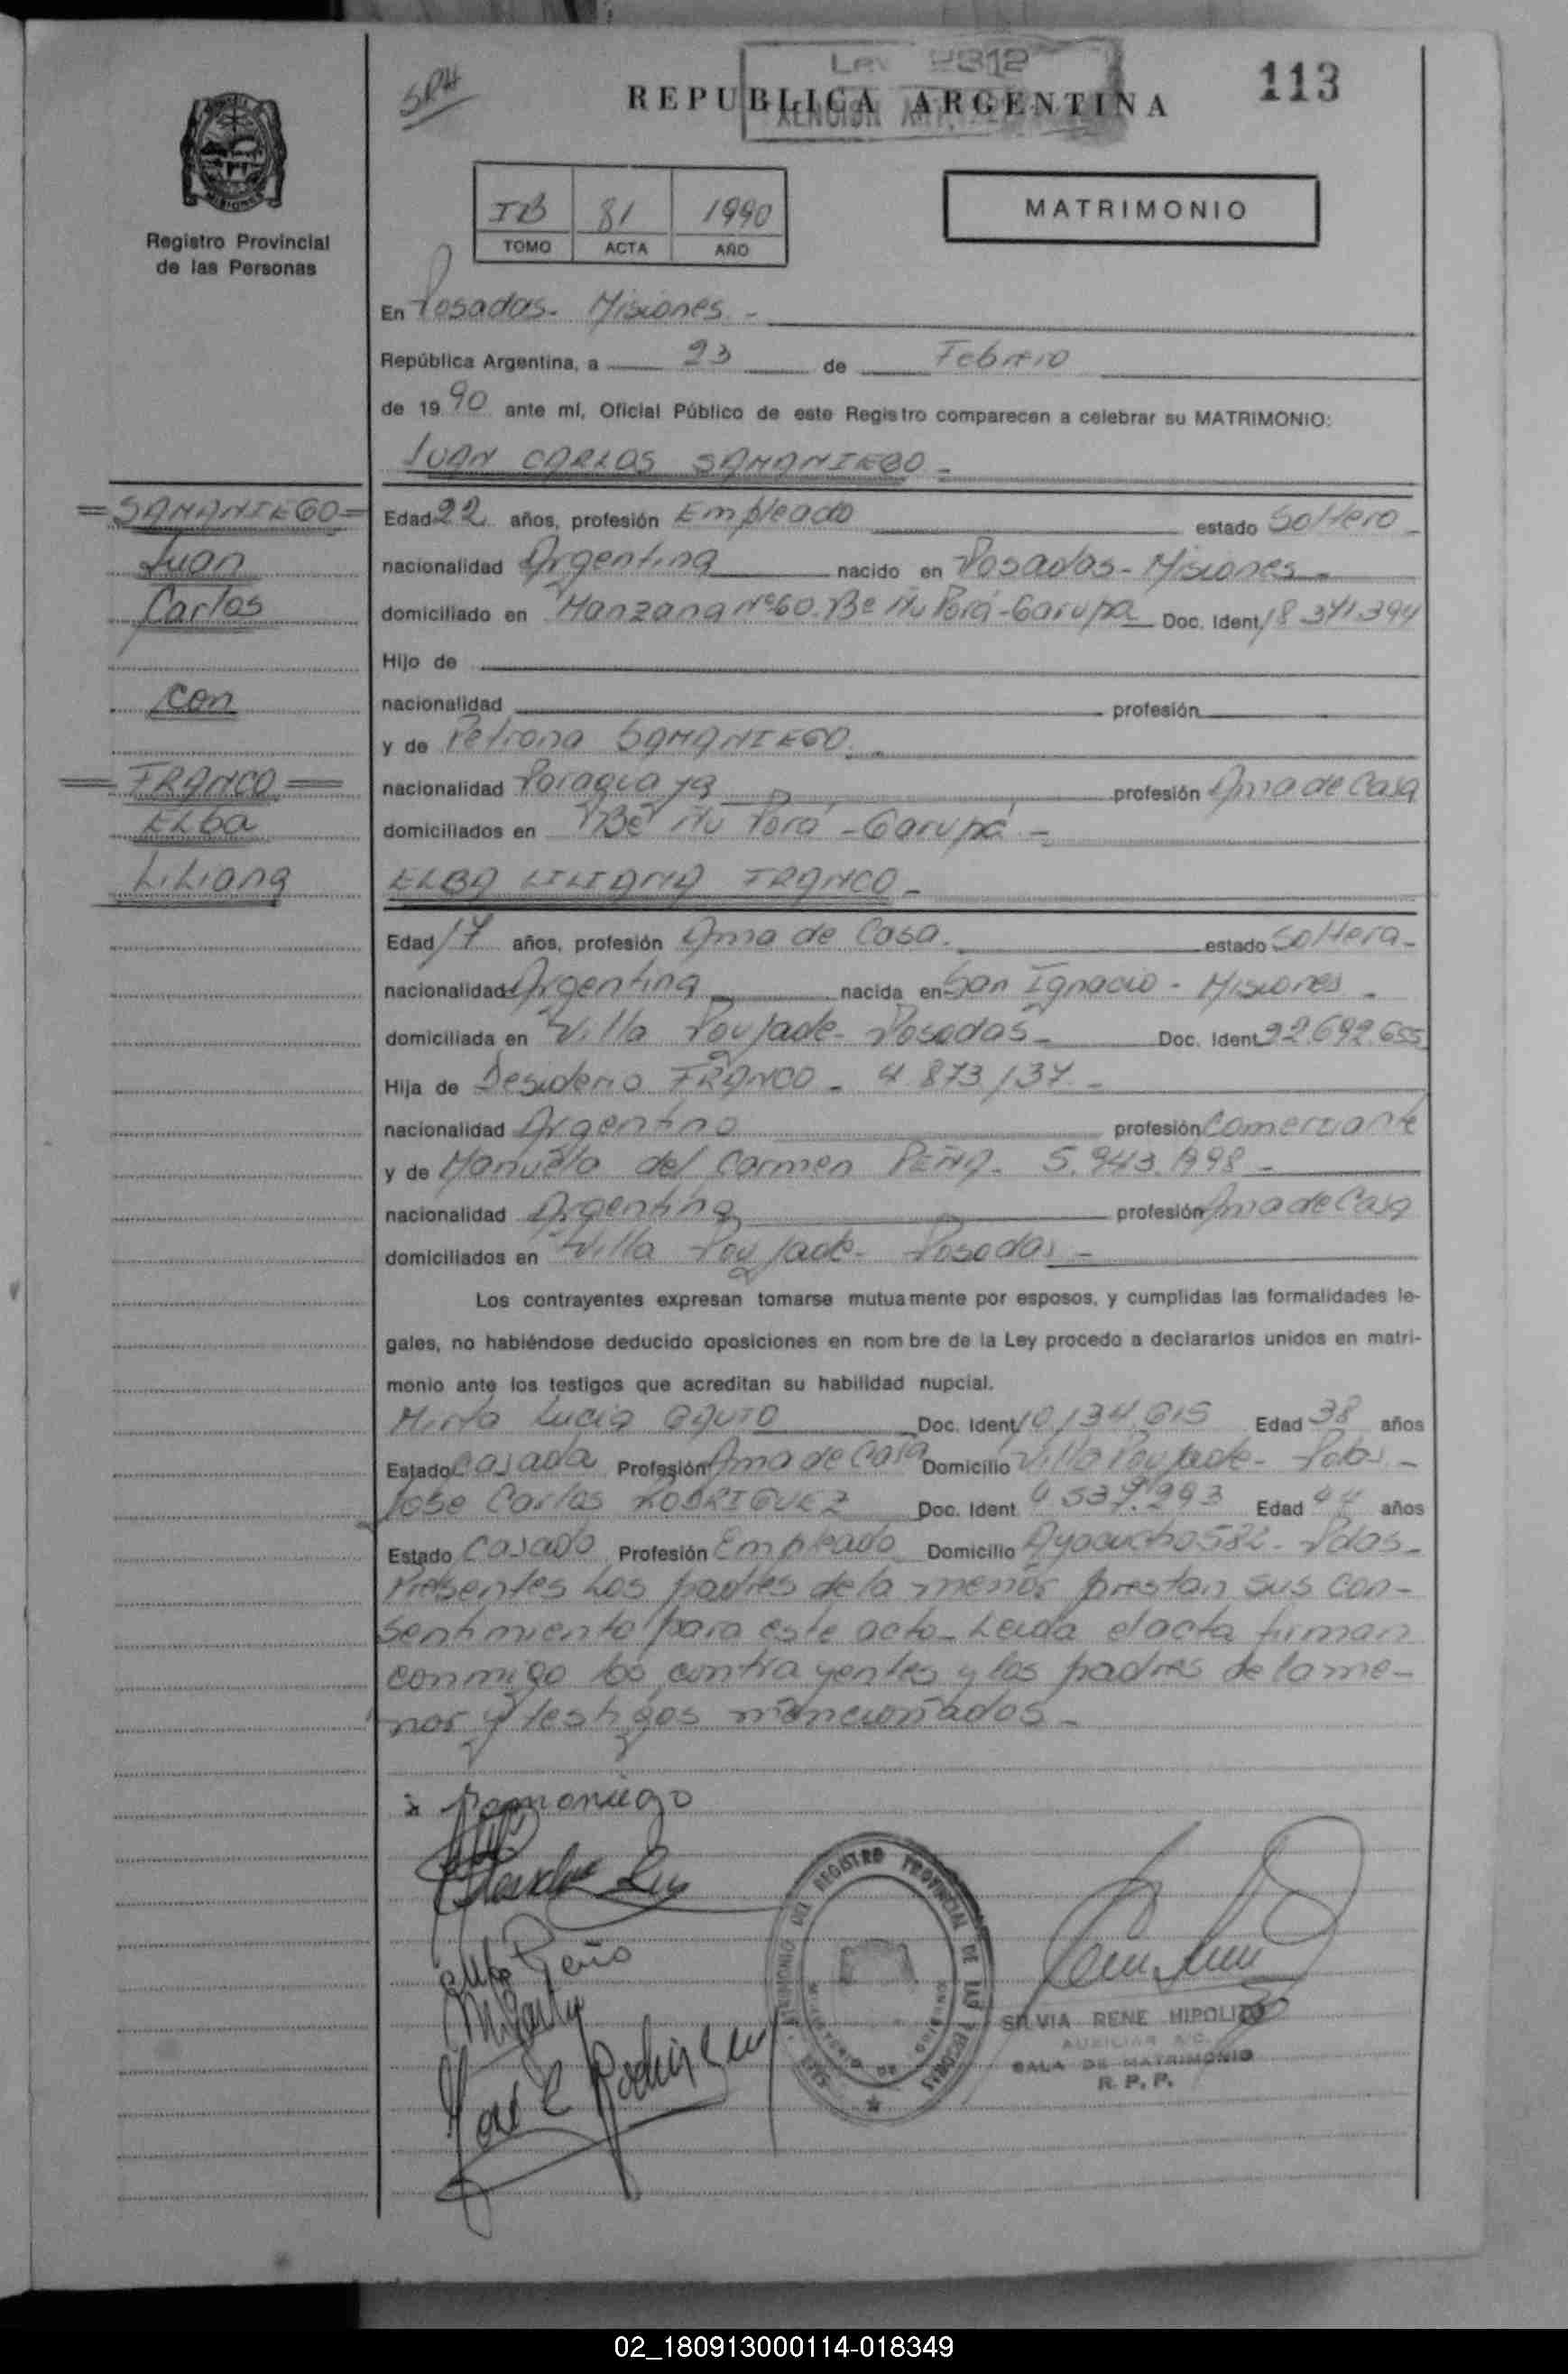 Ley 2312
113
SRH
REPUBLICA ARGENTINA
MISIONES
Registro Provincial
de las Personas
81 1990
TOMO ACTA AÑO
MATRIMONIO
En Posadas - Misiones. -
República Argentina, a 23 de Febrero
de 19 90 ante mí, Oficial Público de este Registro comparecen a celebrar su MATRIMONIO:
JUAN CARLOS SAMANIEGO -
= SAMANIEGO =
Juan
Carlos
con
= FRANCO =
ELba
LiLiana
Edad 22 años, profesión Empleado estado Soltero -
nacionalidad Argentina nacido en Posadas - Misiones -
domiciliado en Manzana Nº 60. Bº Ñu Porá - Garupa Doc. Ident. 18.371.394
Hijo de
nacionalidad profesión
y de Petrona SAMANIEGO. -
nacionalidad Paraguaya profesión Ama de Casa
domiciliados en Bº Ñu Porá - Garupá -
ELBA LILIANA FRANCO -
Edad 17 años, profesión Ama de Casa. estado Soltera -
nacionalidad Argentina nacida en San Ignacio - Misiones -
domiciliada en Villa Poujade - Posadas - Doc. Ident. 92.692.655
Hija de Desiderio FRANCO - 4.873.137 -
nacionalidad Argentino profesión Comerciante
y de Manuela del Carmen PEÑA - 5.943.998 -
nacionalidad Argentina profesión Ama de Casa
domiciliados en Villa Poujade - Posadas -
Los contrayentes expresan tomarse mutuamente por esposos, y cumplidas las formalidades le-
gales, no habiéndose deducido oposiciones en nombre de la Ley procedo a declararlos unidos en matri-
monio ante los testigos que acreditan su habilidad nupcial.
Mirta Lucia GAUTO Doc. Ident. 10.134.615 Edad 38 años
Estado Casada Profesión Ama de Casa Domicilio Villa Poujade - Pdas. -
Jose Carlos RODRIGUEZ Doc. Ident. 4.537.993 Edad 44 años
Estado Casado Profesión Empleado Domicilio Ayacucho 582 - Pdas -
Presentes Los padres de la menor prestan sus con-
sentimiento para este acto - Leida el acta firman
conmigo los contrayentes y los padres de la me-
nor y testigos mencionados -
Samaniego
Peña
José C Rodriguez
DEL REGISTRO PROVINCIAL DE LAS PERSONAS
MINISTERIO DE GOBIERNO
SILVIA RENE HIPOLITO
AUXILIAR A/C.
SALA DE MATRIMONIO
R. P. P.
02_180913000114-018349